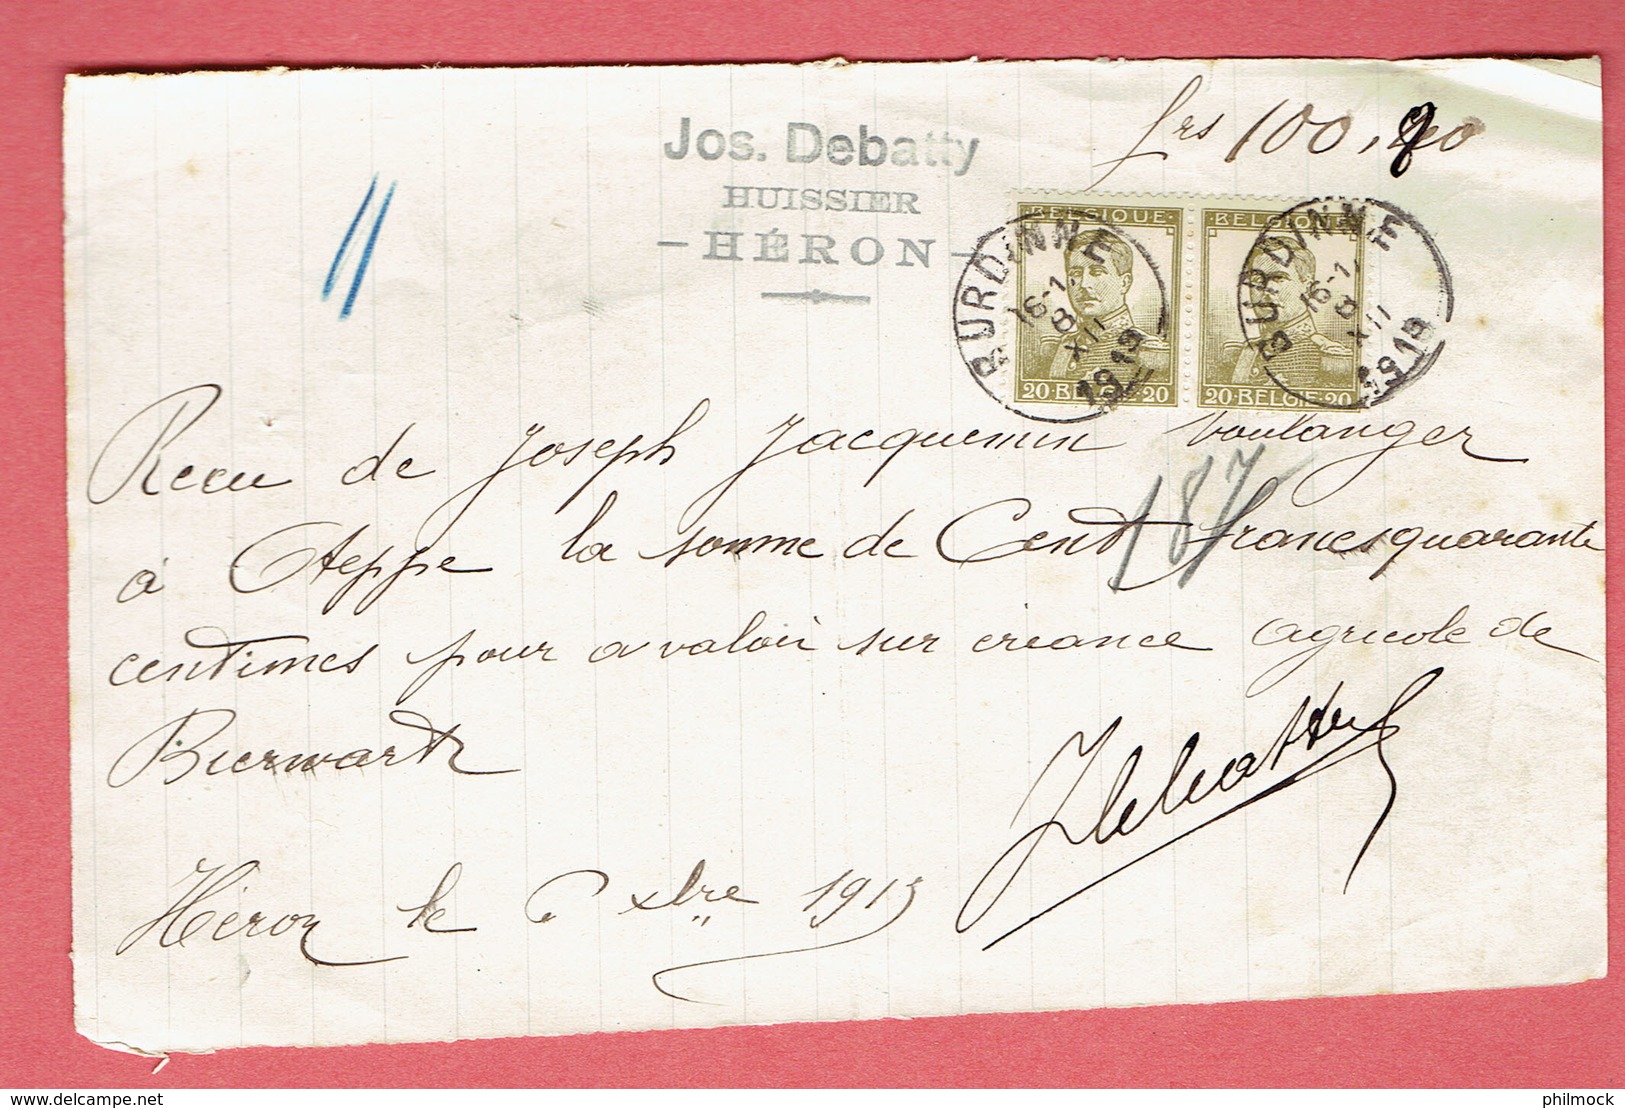 frs 100,40
Jos. Debatty
HUISSIER
- HÉRON -
11
BELGIQUE · BELGIQUE
BURDINNE BURDINNE
16-1 16-1
8 8
XII XII
1913 1913
20·BELGIË·20 20·BELGIË·20
Recu de Joseph Jacquemin boulanger
187
à Oteppe la somme de Cent francs quarante
centimes pour a valoir sur creance agricole de
Bierwart
JDebatty
Héron le 6 Xbre 1913
delcampe.net
philmock